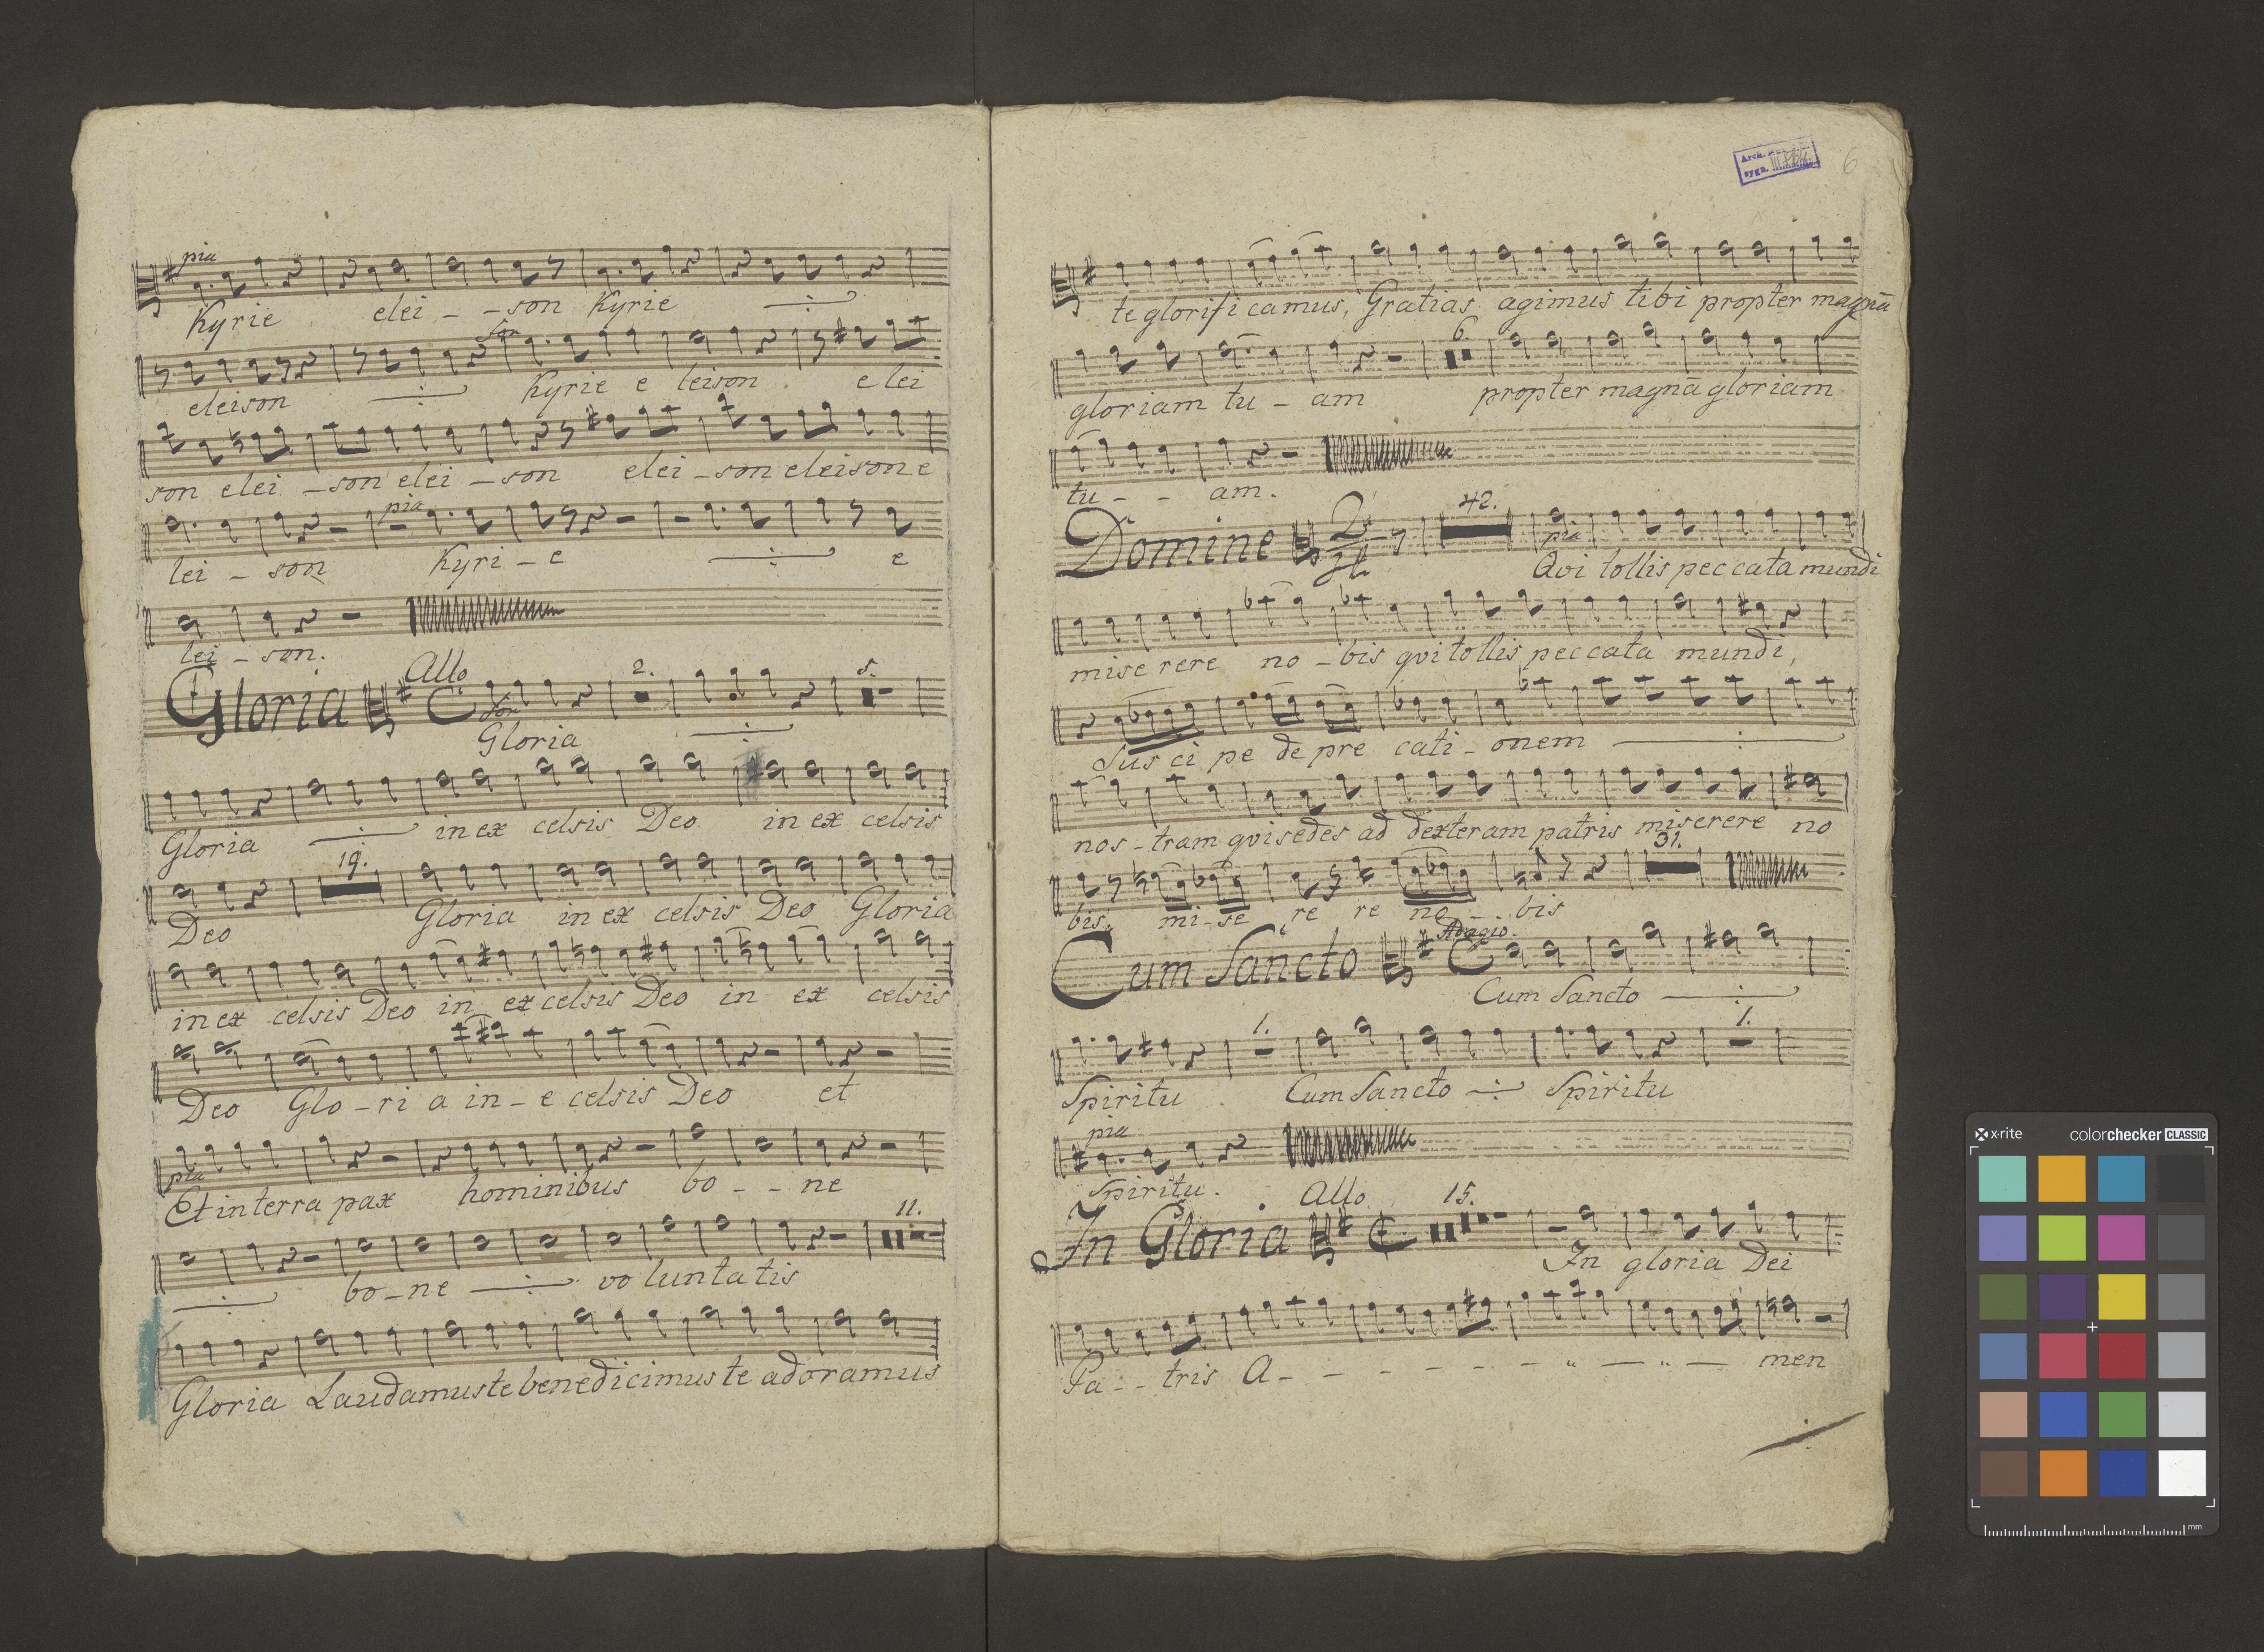 pia
Kyrie elei - - son Kyrie
for
eleison Kyrie e leison e lei
son elei - son elei - son elei - son eleison e
pia
lei - son Kyri - e e
lei - son.
Allo
Gloria 2. 5.
for
Gloria
Gloria in ex celsis Deo in ex celsis
19.
Deo Gloria in ex celsis Deo Gloria
in ex celsis Deo in ex celsis Deo in ex celsis
Deo Glo - ri a in - e celsis Deo et
pia
Et in terra pax hominibus bo - - ne
11.
bo - ne vo luntatis
Gloria Laudamus te benedicimus te adoramus
Arch.
sygn.
6
te glorifi camus, Gratias agimus tibi propter magnā
6.
gloriam tu - am propter magnā gloriam
tu - - am.
Domine 42.
pia
Qui tollis peccata mundi
mise rere no - bis qui tollis peccata mundi,
Sus ci pe de pre cati - onem
nos - tram qui sedes ad dexteram patris miserere no
31.
bis, mi - se re re no - - bis
Adagio.
Cum Sancto
Cum Sancto
1. 1.
Spiritu Cum Sancto Spiritu
pia
Spiritu.
Allo 15.
In Gloria
In gloria Dei
Pa - - tris A - - - - - - - - - men
x-rite colorchecker CLASSIC
mm